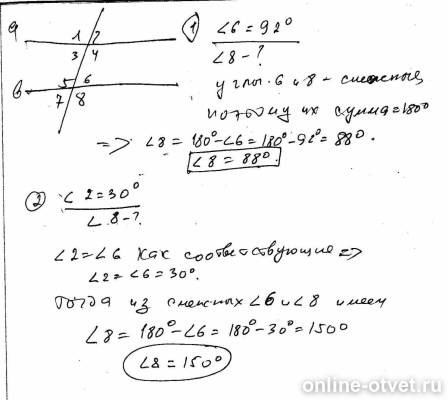 a 1 2
3 4
b 5 6
7 8
1 ∠6 = 92°
∠8 - ?
углы 6 и 8 - смежные
поэтому их сумма = 180°
=> ∠8 = 180° - ∠6 = 180° - 92° = 88°.
∠8 = 88°.
2 ∠2 = 30°
∠8 - ?
∠2 = ∠6 как соответствующие =>
∠2 = ∠6 = 30°.
тогда из смежных ∠6 и ∠8 имеем
∠8 = 180° - ∠6 = 180° - 30° = 150°
∠8 = 150°
online-otvet.ru